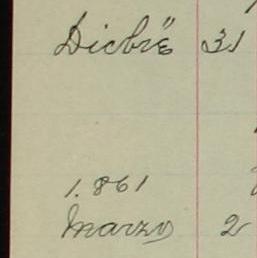 Dicbrë 31
1.861
Marzo 2